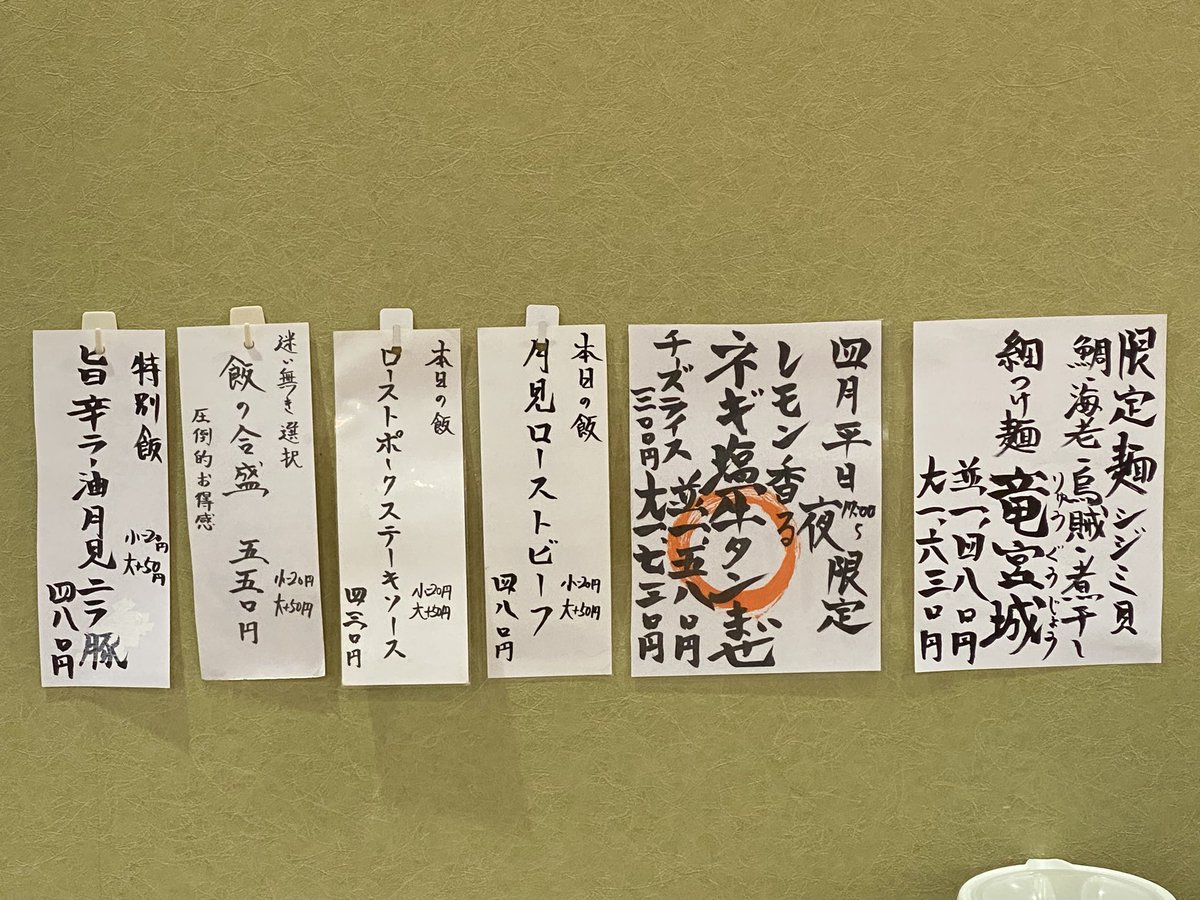 限定麺シジミ貝
鯛・海老・烏賊・煮干し
細つけ麺 竜宮城
りゅうぐうじょう
並一、四八〇円
大一、六三〇円
四月平日夜限定
17:00~
レモン香る
ネギ塩牛タンまぜ
並一、五八〇円
大一、七三〇円
チーズライス
三〇〇円
本日の飯
月見ローストビーフ
小-20円
大+50円
四八〇円
本日の飯
ローストポークステーキソース
小-20円
大+50円
四三〇円
迷い無き選択
飯の合盛 五五〇円
小-20円
大+50円
圧倒的お得感
特別飯
小-20円
大+50円
旨辛ラー油月見ニラ豚
四八〇円